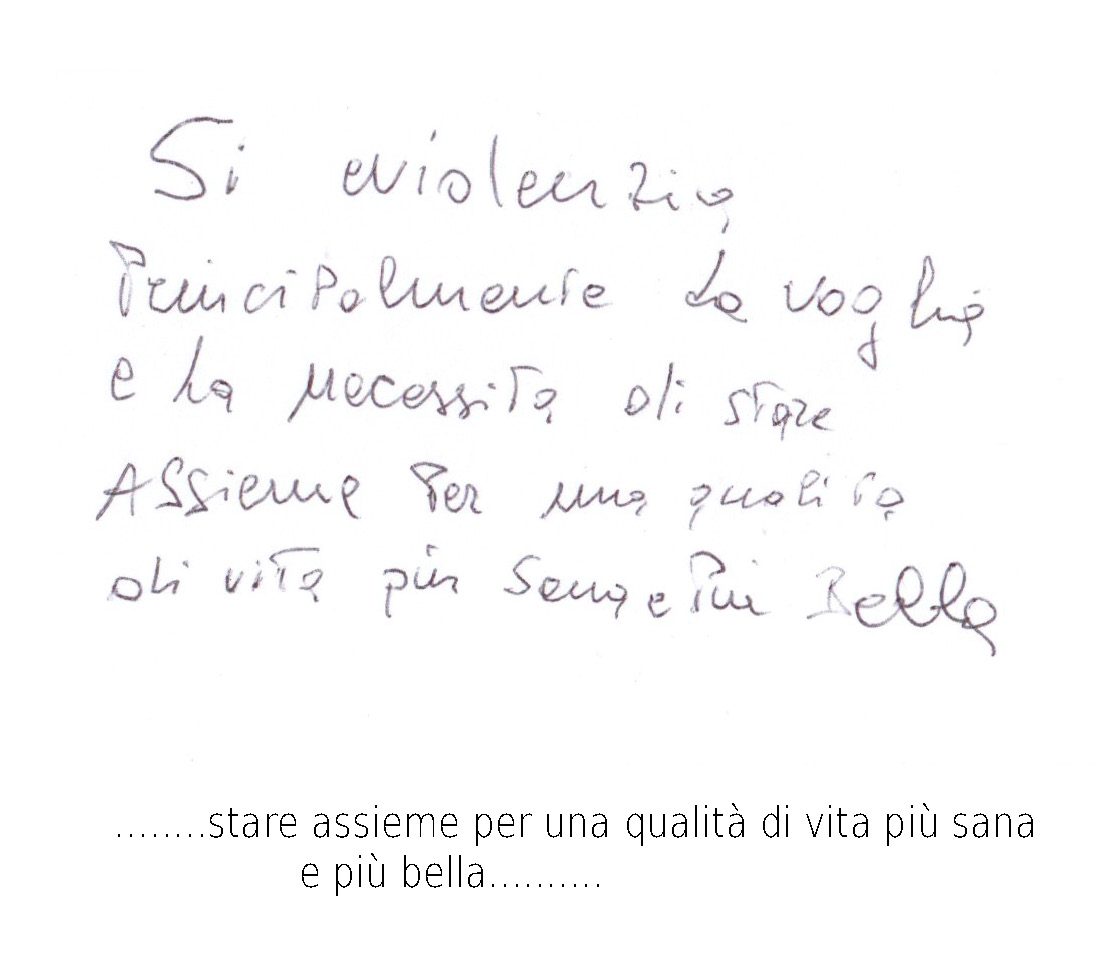 Si eviolenzia
Principalmente La voglia
e la necessita di stare
Assieme Per una qualita
di vita più Sana e Più Bella
........stare assieme per una qualità di vita più sana
e più bella..........